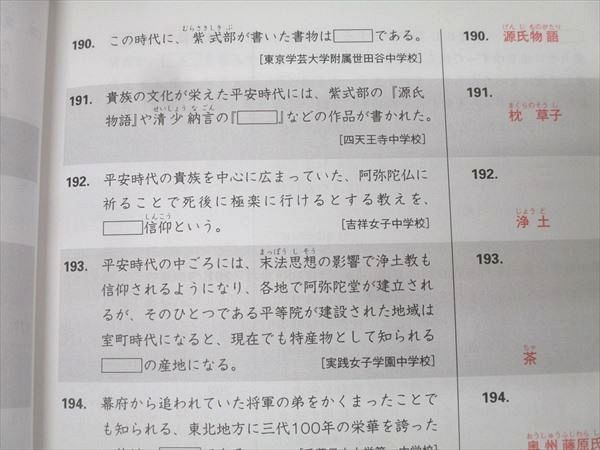 190. この時代に、紫式部が書いた書物は□である。
[東京学芸大学附属世田谷中学校]
190. 源氏物語
191. 貴族の文化が栄えた平安時代には、紫式部の『源氏
物語』や清少納言の『□』などの作品が書かれた。
[四天王寺中学校]
191.
枕草子
192. 平安時代の貴族を中心に広まっていた、阿弥陀仏に
祈ることで死後に極楽に行けるとする教えを、
□信仰という。 [吉祥女子中学校]
192.
浄土
193. 平安時代の中ごろには、末法思想の影響で浄土教も
信仰されるようになり、各地で阿弥陀堂が建立され
るが、そのひとつである平等院が建設された地域は
室町時代になると、現在でも特産物として知られる
□の産地になる。 [実践女子学園中学校]
193.
茶
194. 幕府から追われていた将軍の弟をかくまったことで
も知られる、東北地方に三代100年の栄華を誇った
194.
奥州藤原氏